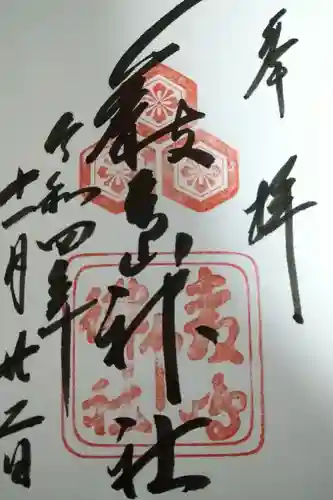 奉拝
嚴島神社
令和四年
十一月廿二日
嚴嶋
神社